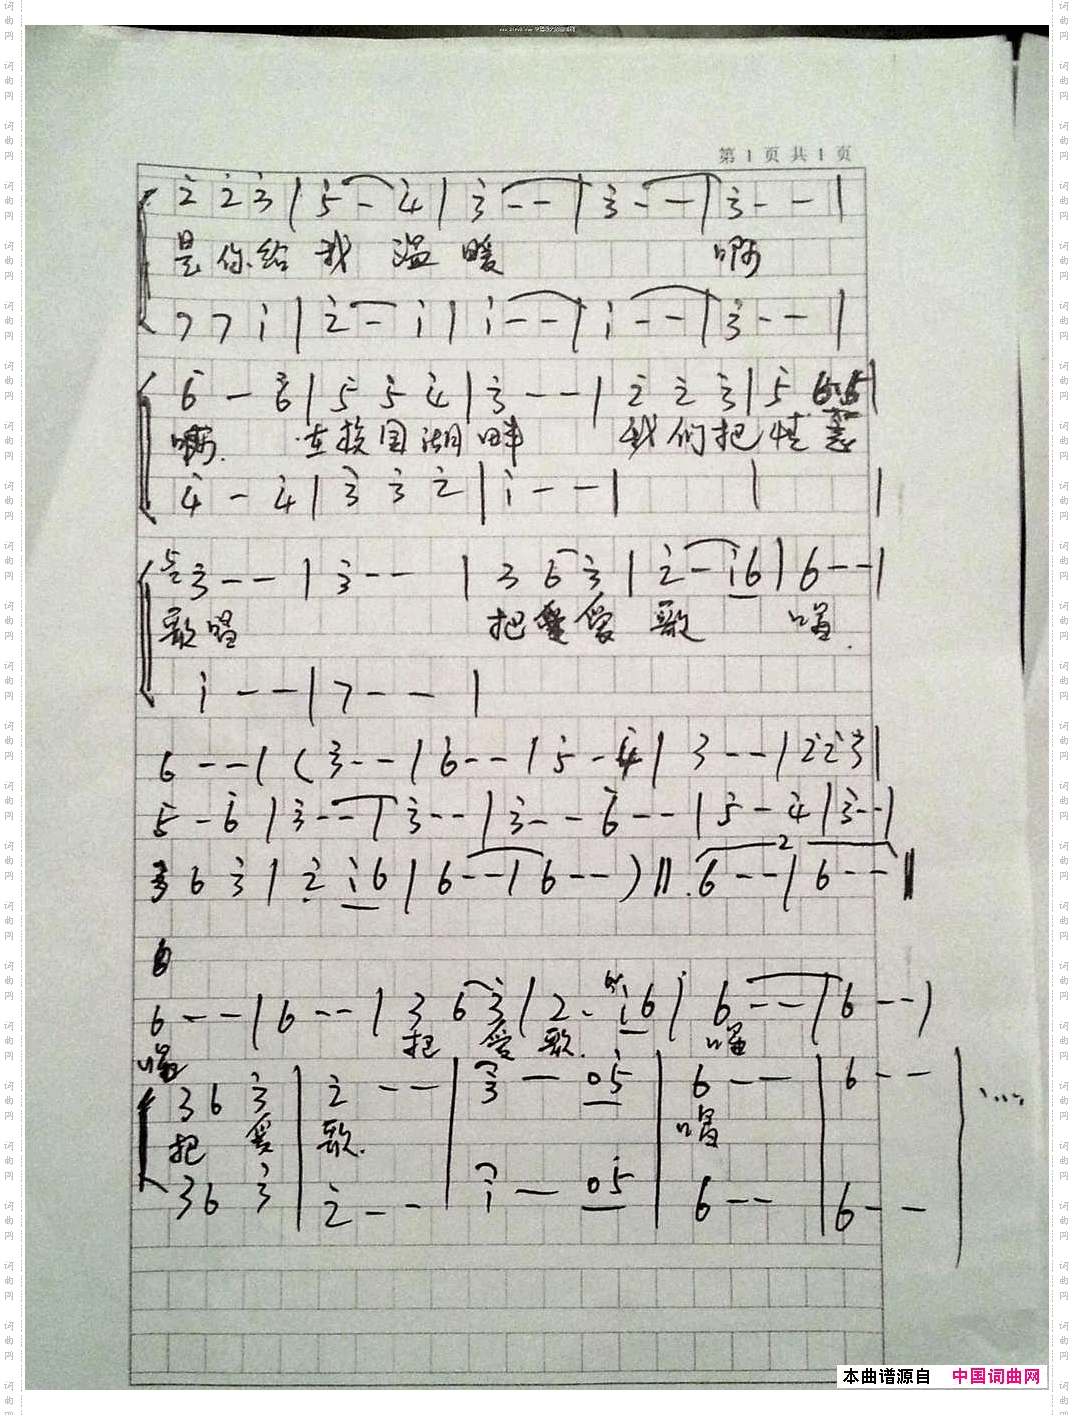 第 1 页 共 1 页
2̇ 2̇ 3̇ | 5̇ - 4̇ | 3̇ - - | 3̇ - - | 3̇ - - |
是你给我温暖 啊
7 7 1̇ | 2̇ - 1̇ | 1̇ - - | 1̇ - - | 3̇ - - |
6̇ - 6̇ | 5̇ 5̇ 4̇ | 3̇ - - | 2̇ 2̇ 3̇ | 5̇ 6̇ 5̇ |
啊 在 湖畔 我们把情
4̇ - 4̇ | 3̇ 3̇ 2̇ | 1̇ - - | | |
3̇ - - | 3̇ - - | 3 6 3̇ | 2̇ - 1̇6 | 6 - - |
歌唱 把爱歌唱
1̇ - - | 7 - - |
6 - - | ( 3̇ - - | 6̇ - - | 5̇ - 4̇ | 3 - - | 2̇ 2̇ 3̇ |
5̇ - 6̇ | 3̇ - - | 3̇ - - | 3̇ - - 6̇ - - | 5̇ - 4̇ | 3̇ - - |
3 6 3̇ | 2̇ 1̇6 | 6 - - | 6 - - ) || 6 - - | 6 - - ||
2
6 - - | 6 - - | 3 6 3̇ | 2̇ - 1̇6 | 6 - - | 6 - - |
唱 把爱歌 唱
3 6 3̇ | 2̇ - - | 3̇ - 05̇ | 6 - - | 6 - - | ……
把爱 歌 唱
3 6 3̇ | 2̇ - - | 1̇ - 05̇ | 6 - - | 6 - - |
本曲谱源自 中国词曲网